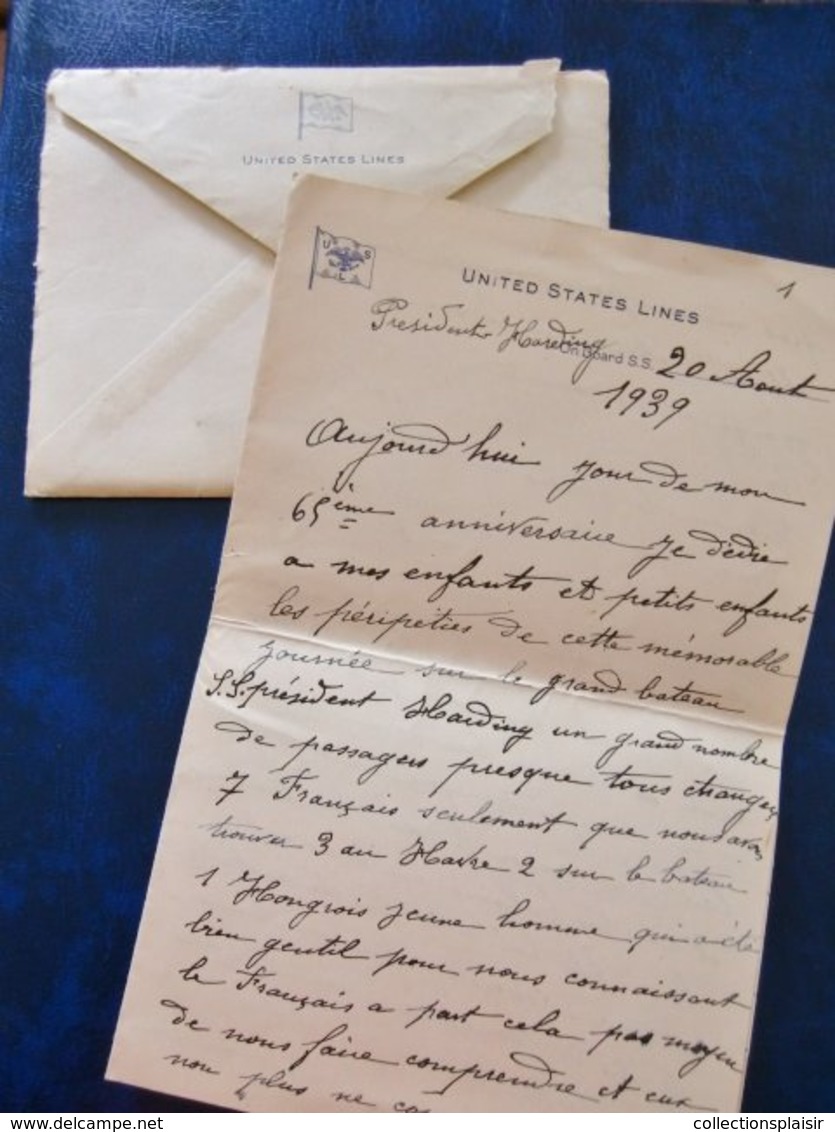 UNITED STATES LINES
U S
L
UNITED STATES LINES
1
Président Harding
On Board S.S. 20 Aout
1939
Aujourd'hui jour de mon
65ème anniversaire je dédie
a mes enfants et petits enfants
les péripéties de cette mémorable
journée sur le grand bateau
S.S. président Harding un grand nombre
de passagers presque tous étrangers
7 Français seulement que nous avons
trouver 3 au Havre 2 sur le bateau
1 Hongrois jeune homme qui a été
bien gentil pour nous connaissant
le Français a part cela pas moyen
de nous faire comprendre et eux
non plus ne
delcampe.net
collectionsplaisir